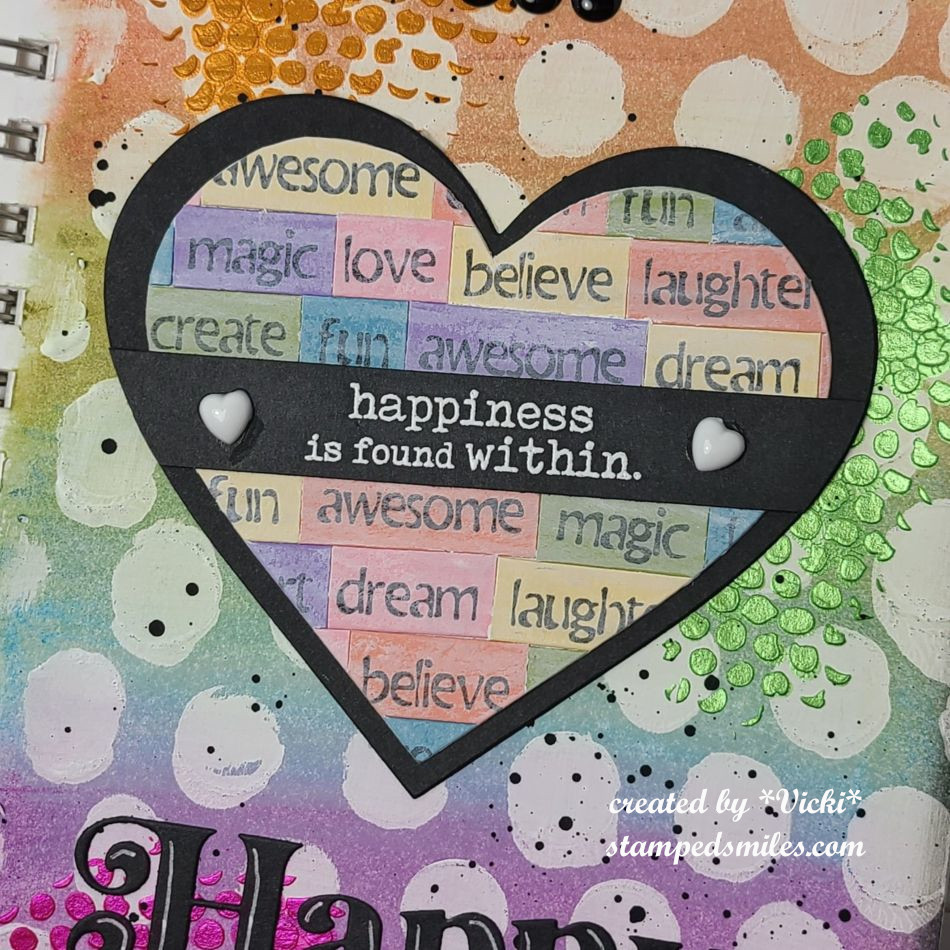 awesome fun
magic love believe laughter
create fun awesome dream
happiness
is found within.
fun awesome magic
dream laughter
believe
created by *Vicki*
stampedsmiles.com
Happy